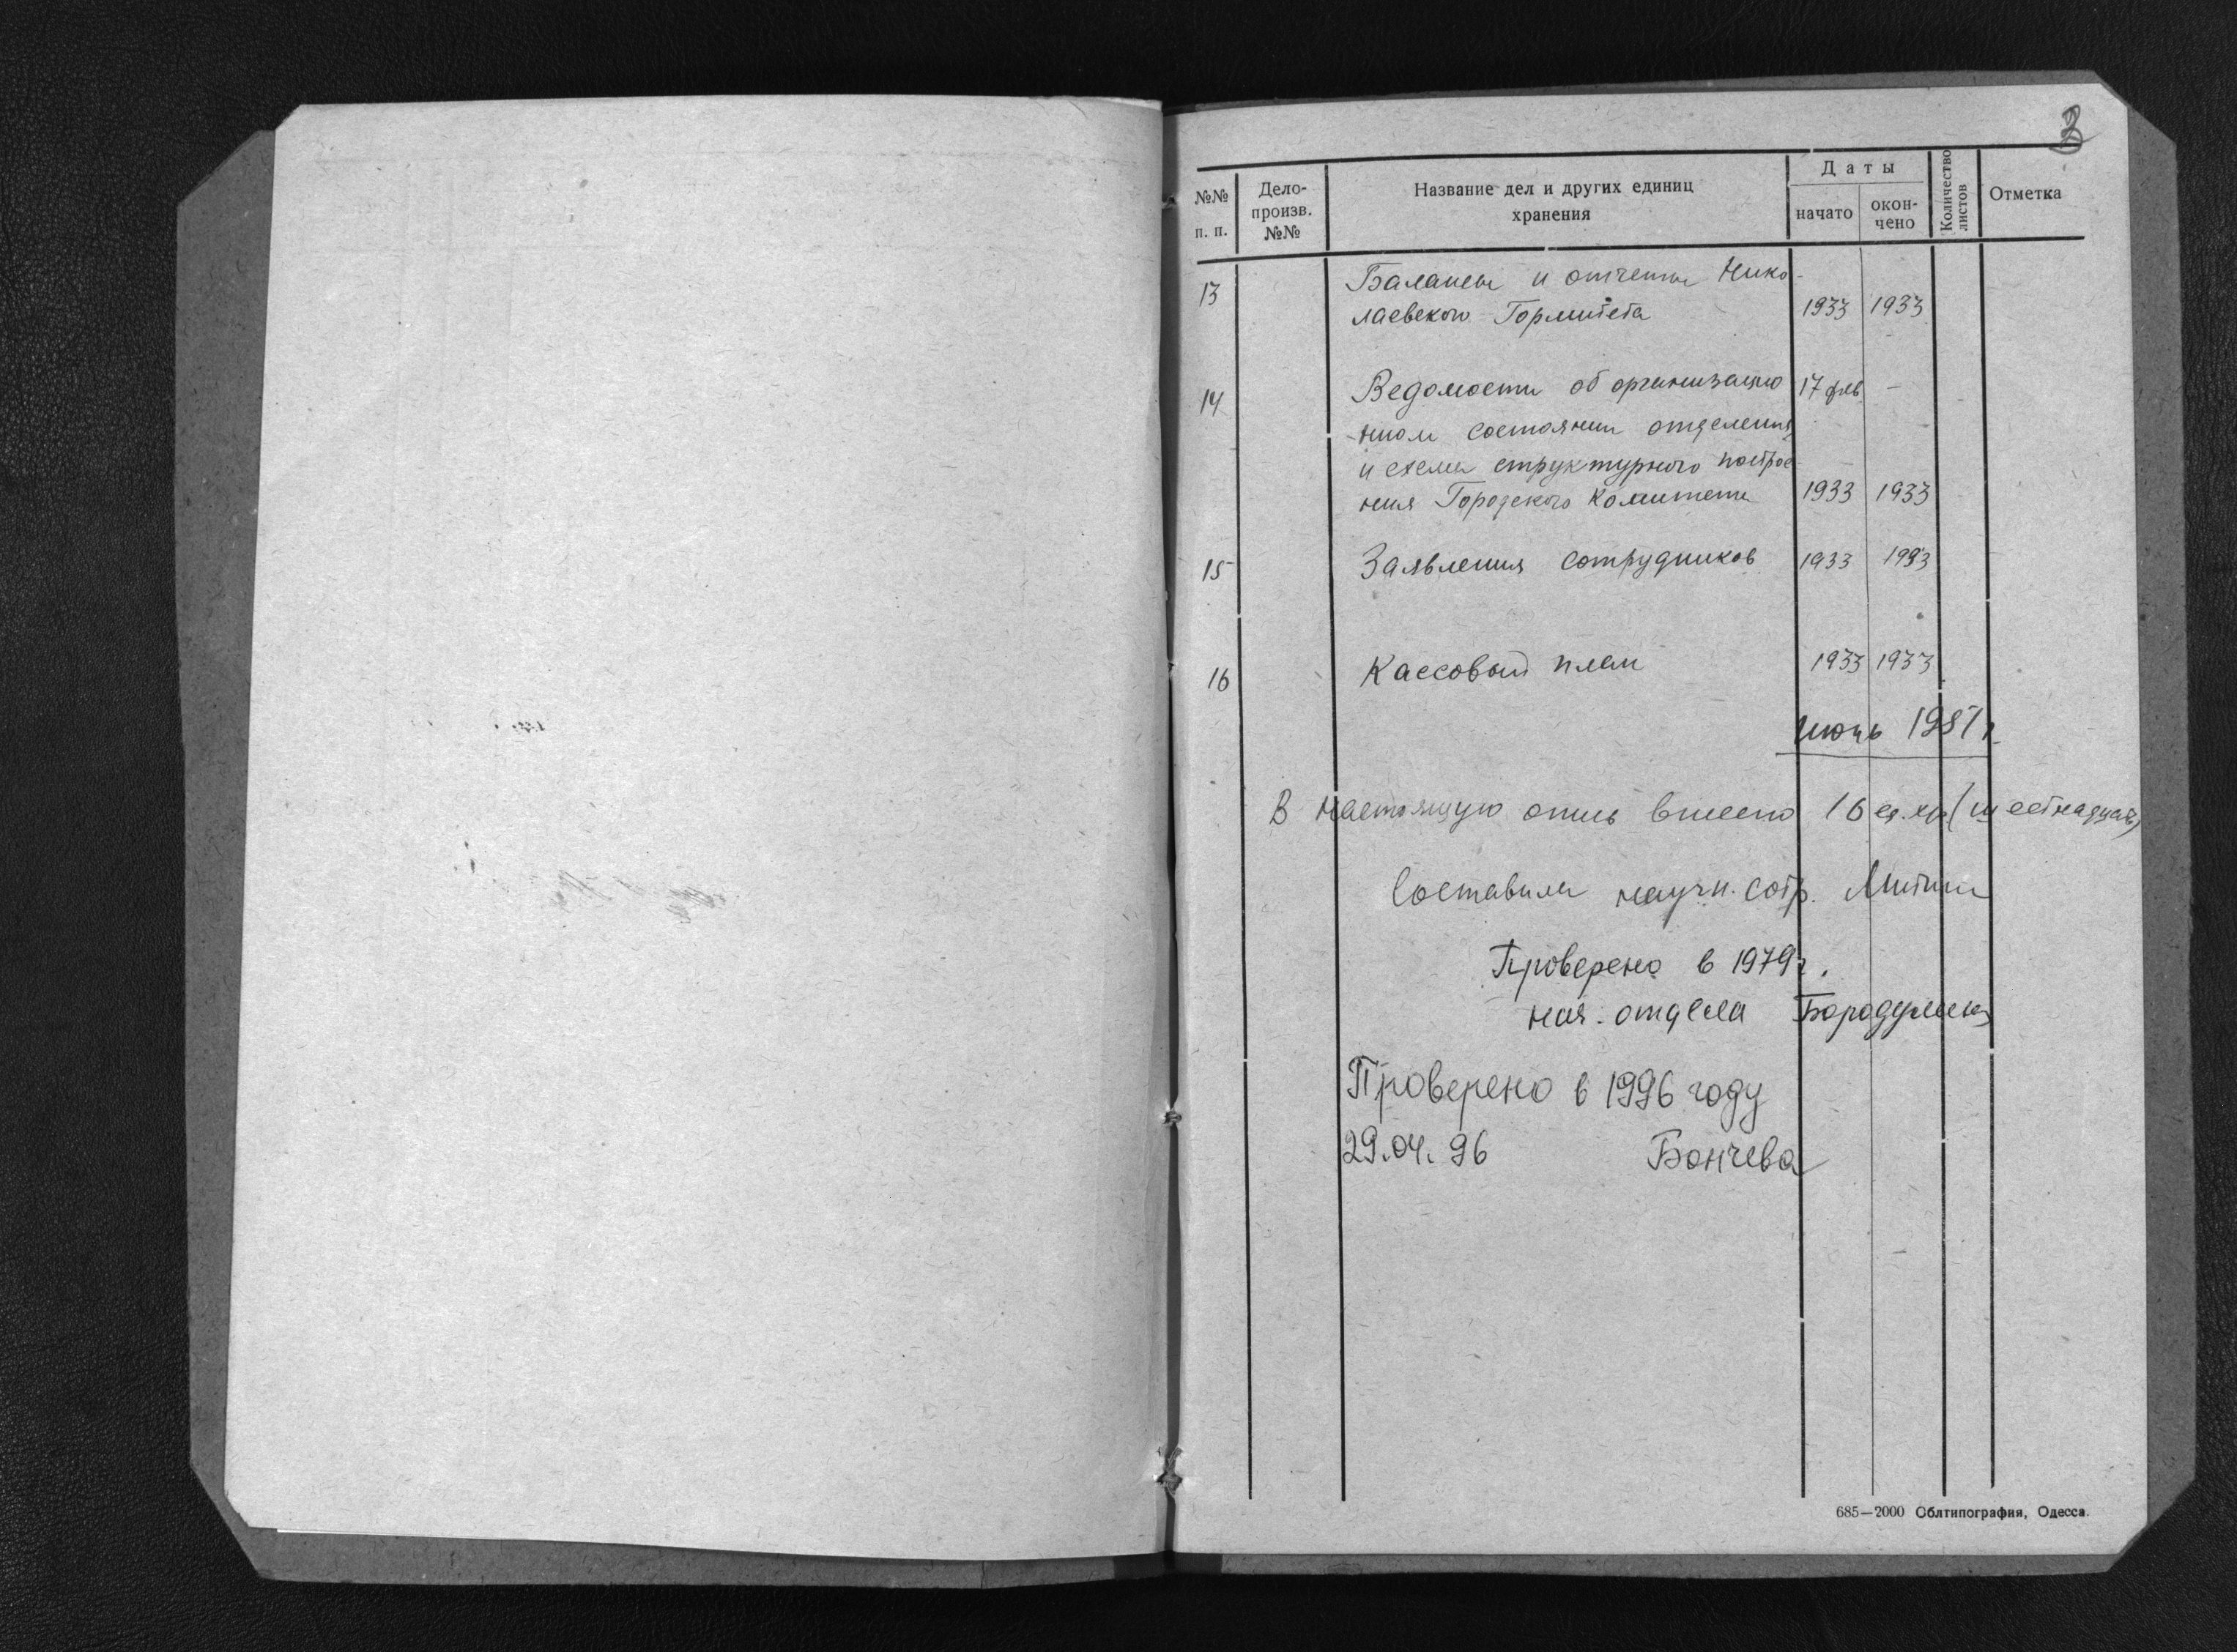 3
№№ п. п.
Дело-
произв.
№№
Название дел и других единиц
хранения
Даты
начато
окон-
чено
Количество
листов
Отметка
13
Балансы и отчеты Нико-
лаевского Гормитета 1933 1933
14
Ведомости об организацио 17 фев. -
нном состоянии отделения
и схема структурного построе-
ния Городского Комитета 1933 1933
15 Заявления сотрудников 1933 1933
16 Кассовый план 1933 1933
июнь 1951 г.
В настоящую опись внесено 16 ед. хр. (шестнадцать)
Составила научн. сотр.
Проверено в 1979 г.
нач. отдела Бородулина
Проверено в 1996 году
29.04.96 Бончева
685—2000 Облтипография, Одесса.